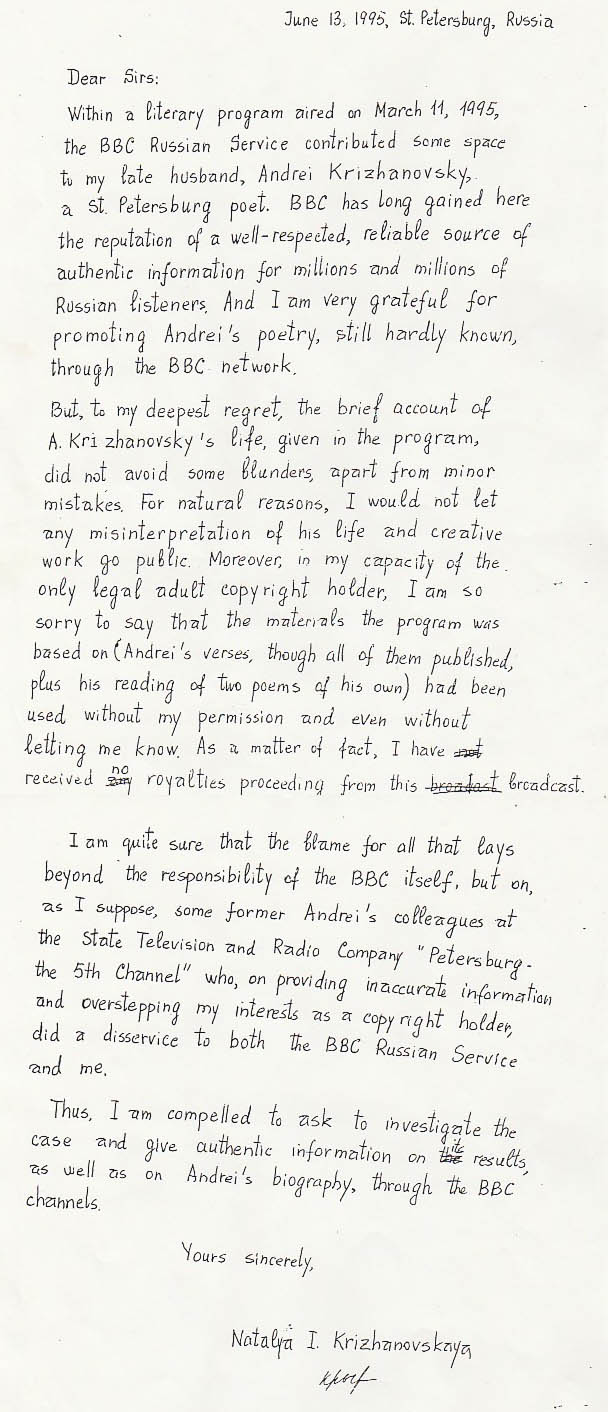 June 13, 1995, St. Petersburg, Russia
Dear Sirs:
Within a literary program aired on March 11, 1995,
the BBC Russian Service contributed some space
to my late husband, Andrei Krizhanovsky,
a St. Petersburg poet. BBC has long gained here
the reputation of a well-respected, reliable source of
authentic information for millions and millions of
Russian listeners. And I am very grateful for
promoting Andrei's poetry, still hardly known,
through the BBC network.
But, to my deepest regret, the brief account of
A. Krizhanovsky's life, given in the program,
did not avoid some blunders, apart from minor
mistakes. For natural reasons, I would not let
any misinterpretation of his life and creative
work go public. Moreover, in my capacity of the
only legal adult copyright holder, I am so
sorry to say that the materials the program was
based on (Andrei's verses, though all of them published,
plus his reading of two poems of his own) had been
used without my permission and even without
letting me know. As a matter of fact, I have not
received any no royalties proceeding from this broadast broadcast.
I am quite sure that the blame for all that lays
beyond the responsibility of the BBC itself, but on,
as I suppose, some former Andrei's colleagues at
the State Television and Radio Company "Petersburg-
the 5th Channel" who, on providing inaccurate information
and overstepping my interests as a copyright holder,
did a disservice to both the BBC Russian Service
and me.
Thus, I am compelled to ask to investigate the
case and give authentic information on its results,
as well as on Andrei's biography, through the BBC
channels.
Yours sincerely,
Natalya I. Krizhanovskaya